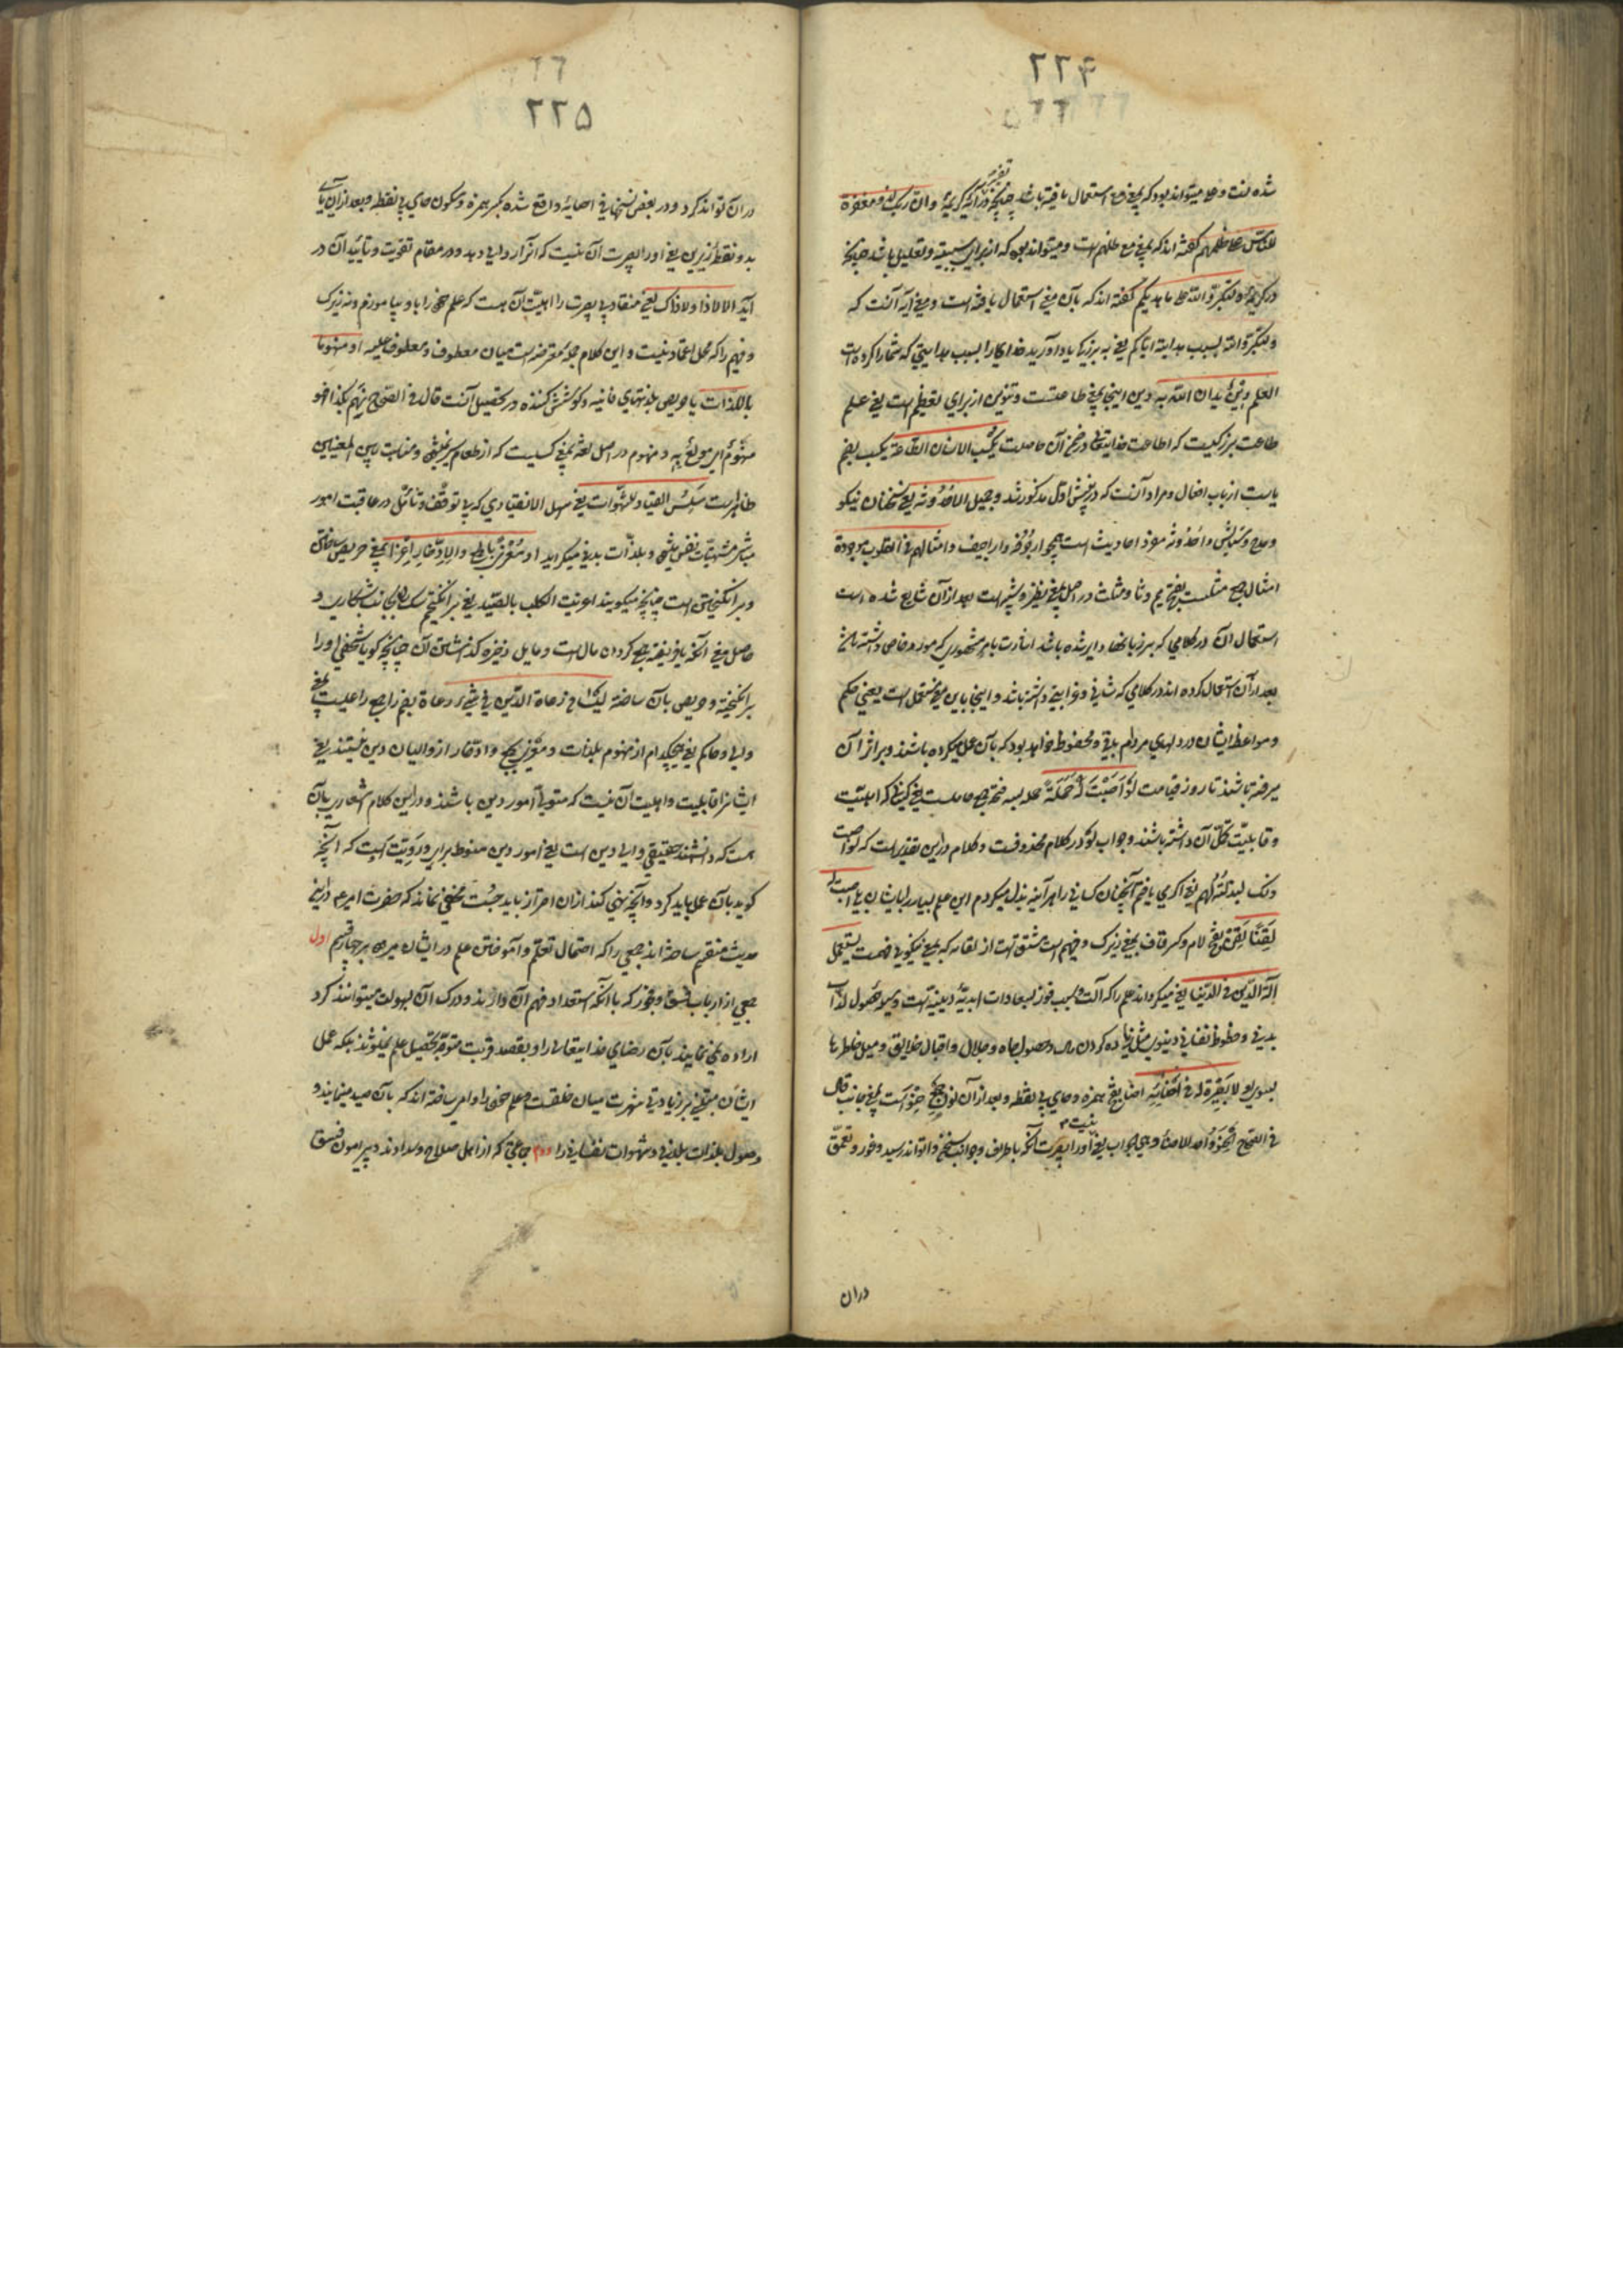 ٢٢۴
شده است و علی میتواند بود که بمعنی مع استعمال یافته باشد چنانچه در آیه کریمهٔ و ان ربک لذو مغفرة
للناس علی ظلمهم گفته اند که بمعنی مع ظلمهم است و میتواند بود که از برای سببیة و تعلیل باشد چنانچه
در کریمهٔ و لتکبروا الله علی ما هدیکم گفته اند که بآن معنی استعمال یافته است و معنی آیه آنست که
و لتکبروا الله بسبب هدایته ایاکم یعنی به بزرگی یاد آورید خدا را بسبب هدایتی که شما را کرده است
العلم دین یدان الله به دین اینجا بمعنی طاعتست و تنوین از برای تعظیم است یعنی علم
طاعت بزرگیست که اطاعت خدایتعالی در ضمن آن حاصلست یکسب الانسان الطاعة یکسب بضم
یاست از باب افعال و مراد آنست که در پیش اول مذکور شد و جمیل الاحدوثة یعنی سخنان نیکو
و مدح و ستایش و احدوثه مفرد احادیث است همچو اراجیف و امثالهم فی القلوب موجودة
امثال جمع مثلست بفتح میم و ثا و مثلث در اصل بمعنی نظیر و شبیه است بعد از آن شایع شده است
استعمال آن در کلامی که بر زبانها دایر شده باشد
بعد از آن استعمال کرده اند در کلامی که شانی و غرابتی داشته باشد و اینجا باین معنی مستعمل است یعنی حکم
و مواعظ ایشان در دلهای مردم باقی و محفوظ خواهد بود که بآن عمل میکرده باشند و بر اثر آن
میرفته باشند تا روز قیامت لو اصبت له حملة حمله بسه فتحه جمع حاملست یعنی کسانی که اهلیت
و قابلیت تحمل آن داشته باشند و جواب لو در کلام محذوفست و کلام در این تقدیر است که لو اصبت
لبذلته لهم یعنی اگر می یافتم آنچنان کسانی را هر آینه بذل میکردم این علم بسیار را بایشان بلی اصیب
لقنا لقن بفتح لام و کسر قاف بمعنی زیرک و فهیم است مشتق است از لقانه که بمعنی نیکویی فهمست یستعمل
آلة الدین فی الدنیا یعنی میگرداند علم را که آلت و سبب فوز بسعادات ابدیهٔ دینیه است وسیلهٔ حصول لذات
بدنی و حظوظ نفسانی دنیوی مثل زیاده کردن مال و حصول جاه و جلال و اقبال خلایق و میل خاطرها
بسوی او لا بصیرة له فی احنائه احنا بفتح همزه و حای بی نقطه و بعد از آن نون جمع حنو است بمعنی جانب قال
فی الصحاح الحنو واحد الاحناء و هی الجوانب یعنی او را بصیرت نیست که باطراف و جوانب سخن تواند رسید و غور و تعمق
دران
٢٢۵
در آن تواند کرد و در بعض نسخها فی احیائه واقع شده بکسر همزه و سکون حای بی نقطه و بعد از آن یای
بدو نقطه زیرین یعنی او را بصیرت آن نیست که آنرا رواجی دهد و در مقام تقویت و تایید آن در
آید الا لا ذا و لا ذاک یعنی منقاد بی بصیرت را اهلیت آن هست که علم خود را باو بیاموزم و نه زیرک
و فهیم را که محل اعتماد نیست و این کلام جملهٔ معترضه است میان معطوف و معطوف علیه او منهوما
باللذات یا حریص بلذتهای فانیه و کوشش کننده در تحصیل آنست قال فی الصحاح نهم بکذا فهو
منهوم ای مولع به و منهوم در اصل لغة بمعنی کسیست که از طعام سیر نمیشود و مناسبت بین المعنیین
ظاهر است سلس القیاد للشهوات یعنی سهل الانقیادی که بی توقف و تامل در عاقبت امور
مباشر مشتهیات نفس میشود و بلذات بدنی میگراید او مغرم بالجمع و الادخار اغرا بمعنی حریص ساختن
و برانگیختن است چنانچه میگویند اغریت الکلب بالصید یعنی برانگیختم سگ را بجانب شکاری و
حاصل معنی آنکه یا فریفتهٔ جمع کردن مال است و مایل ذخیره گذاشتن آن چنانچه گویا شخصی او را
برانگیخته و حریص بآن ساخته لیسا من رعاة الدین فی شیء رعاة بضم را جمع راعیست بمعنی
والی و حاکم یعنی هیچکدام از منهوم بلذات و مغرم بجمع و ادخار از والیان دین نیستند یعنی
ایشانرا قابلیت و اهلیت آن نیست که متولی امور دین باشند و در این کلام اشعاری بآن
هست که دانشمند حقیقی والی دین است یعنی امور دین منوط برای و رویت اوست که آنچه
گوید بآن عمل باید کرد و آنچه نهی کند از آن احتراز باید جست مخفی نماند که حضرت امیر ع در این
حدیث منقسم ساخته اند جمعی را که احتمال تعلم و آموختن علم در ایشان میرود بر چهار قسم اول
جمعی از ارباب فسق و فجور که با آنکه استعداد فهم آن دارند و درک آن بسهولت میتوانند کرد
اراده نمی نمایند بآن رضای خدایتعالی را و بقصد قربت متوجه تحصیل علم نمیشوند بلکه عمل
ایشان مبتنی بر زیادتی شهرت میان خلقست و علم خود را دام ساخته اند که بآن صید مینمایند
وصول بلذات بدنی و شهوات نفسانی را دوم جماعتی که از اهل صلاح و سداد و پیرامون فسق